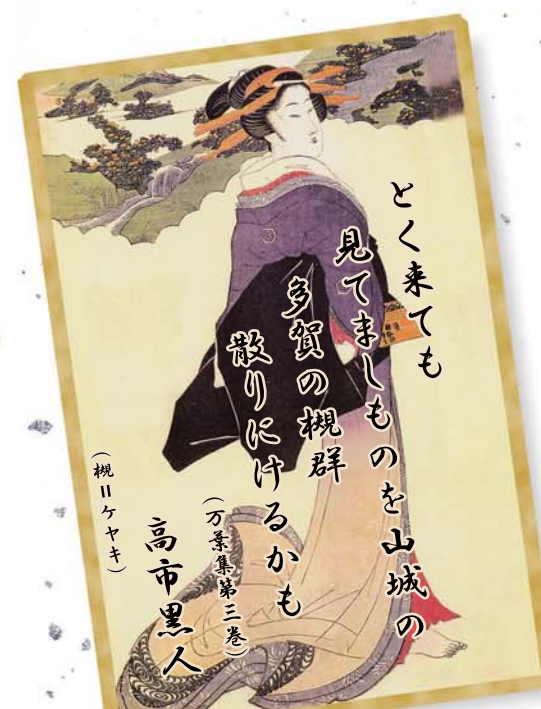 とく来ても
見てましものを山城の
多賀の槻群
散りにけるかも
(万葉集第三巻)
高市黒人
(槻=ケヤキ)